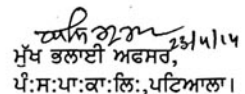 23/4/14
ਮੁੱਖ ਭਲਾਈ ਅਫਸਰ,
ਪੰ:ਸ:ਪਾ:ਕਾ:ਲਿ:,ਪਟਿਆਲਾ।